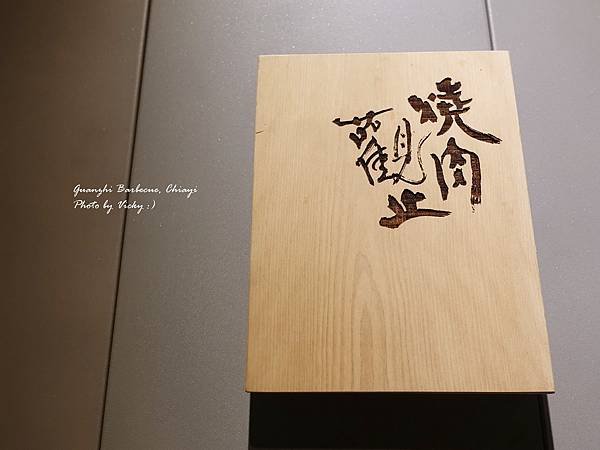 燒肉
觀止
Guanzhi Barbecue, Chiayi
Photo by Vicky :)